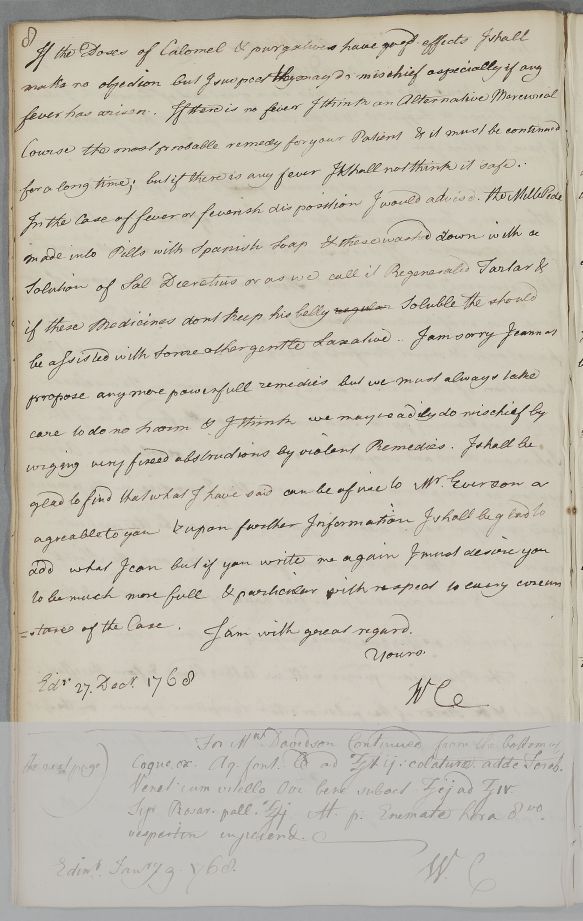 8
If the Doses of Calomel & purgatives have good effects I shall
make no objection but I suspect they may do mischief especially if any
fever has arisen. If there is no fever I think an Alternative Mercurial
Course the most probable remedy for your Patient & it must be continued
for a long time; but if there is any fever I shall not think it safe.
In the Case of fever or feverish disposition I would advise the MillePede
made into Pills with Spanish Soap & these washed down with a
Solution of Sal Diureticus or as we call it Regenerated Tartar &
if these Medicines dont keep his belly regular Soluble the should
be assisted with some other gentle Laxative. I am sorry I cannot
propose any more powerfull remedies but we must always take
care to do no harm & I think we may readily do mischief by
urging very fixed obstructions by violent Remedies. I shall be
glad to find that what I have said can be of use to Mr. Everson or
agreeable to you & upon further Information I shall be glad to
add what I can but if you write me again I must desire you
to be much more full & particular with respect to every circum
=stance of the Case. I am with great regard.
Yours.
Edr. 27. Decr. 1768
WC
For Mrs Davidson Continued from the bottom of
the next page)
Coque ex. Aq. font. ad ℥x ij: colaturæ adde Tereb.
Venet: cum vitello Ovi bene subact. ad
Syr. Rosar. pall. M. p. Enemate hora 8vo.
vespertin injiciend.
Edinr. Janry 9. 1768.
W. C